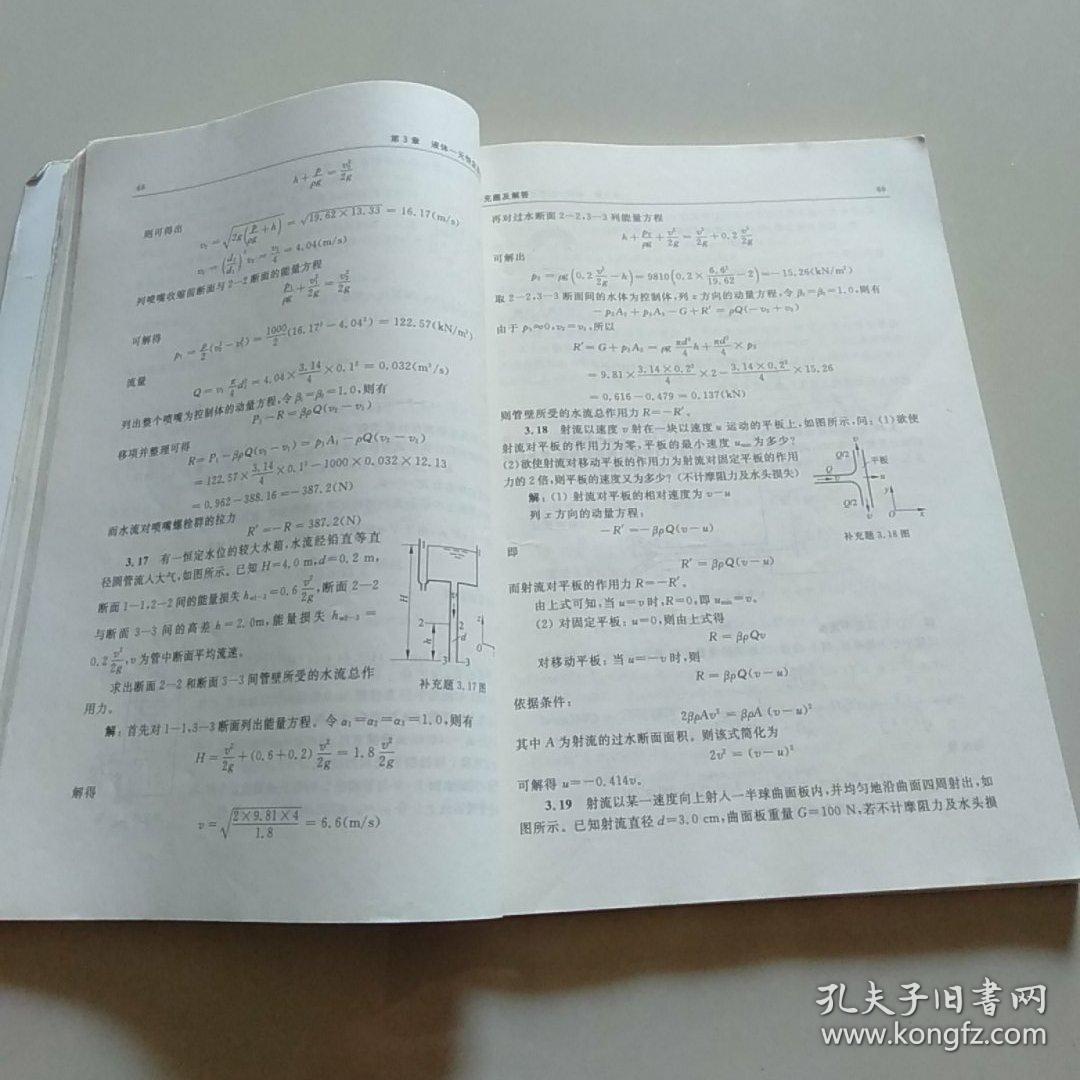 68
第3章 液体一元
h+p/ρg=v₂²/2g
则可得出
v₂=√(2g(p/ρg+h))=√(19.62×13.33)=16.17(m/s)
v₁=(d₂/d₁)²v₂=v₂/4=4.04(m/s)
列喷嘴收缩前断面与2—2断面的能量方程
p₁/ρg+v₁²/2g=v₂²/2g
可解得
p₁=ρ/2(v₂²-v₁²)=1000/2(16.17²-4.04²)=122.57(kN/m²)
流量
Q=v₁π/4d₁²=4.04×3.14/4×0.1²=0.032(m³/s)
列出整个喷嘴为控制体的动量方程,令β₁=β₂=1.0,则有
P₁-R=βρQ(v₂-v₁)
移项并整理可得
R=P₁-βρQ(v₂-v₁)=p₁A₁-ρQ(v₂-v₁)
=122.57×3.14/4×0.1²-1000×0.032×12.13
=0.962-388.16=-387.2(N)
而水流对喷嘴螺栓群的拉力
R′=-R=387.2(N)
3.17 有一恒定水位的较大水箱,水流经铅直等直
径圆管流入大气,如图所示。已知H=4.0m,d=0.2m,
断面1—1,2—2间的能量损失hw1-2=0.6v²/2g,断面2—2
与断面3—3间的高差h=2.0m,能量损失hw2-3=
0.2v²/2g,v为管中断面平均流速。
求出断面2—2和断面3—3间管壁所受的水流总作
用力。
1
1
H
v
2
2
h
d
3
3
z
0
补充题3.17图
解:首先对1—1,3—3断面列出能量方程。令α₁=α₂=α₃=1.0,则有
H=v²/2g+(0.6+0.2)v²/2g=1.8v²/2g
解得
v=√(2×9.81×4/1.8)=6.6(m/s)
充题及解答
69
再对过水断面2—2,3—3列能量方程
h+p₂/ρg+v²/2g=v²/2g+0.2v²/2g
可解出
p₂=ρg(0.2v²/2g-h)=9810(0.2×6.6²/19.62-2)=-15.26(kN/m²)
取2—2,3—3断面间的水体为控制体,列z方向的动量方程,令β₂=β₃=1.0,则有
-p₂A₂+p₃A₃-G+R′=ρQ(-v₃+v₂)
由于p₃≈0,v₂=v₃,所以
R′=G+p₂A₂=ρgπd²/4h+πd²/4×p₂
=9.81×3.14×0.2²/4×2-3.14×0.2²/4×15.26
=0.616-0.479=0.137(kN)
则管壁所受的水流总作用力R=-R′。
3.18 射流以速度v射在一块以速度u运动的平板上,如图所示,问:(1)欲使
射流对平板的作用力为零,平板的最小速度umin为多少?
(2)欲使射流对移动平板的作用力为射流对固定平板的作用
力的2倍,则平板的速度又为多少?(不计摩阻力及水头损失)
v
Q/2
平板
Q
v
u
Q/2
v
y
O
x
补充题3.18图
解:(1)射流对平板的相对速度为v-u
列x方向的动量方程:
-R′=-βρQ(v-u)
即
R′=βρQ(v-u)
而射流对平板的作用力R=-R′。
由上式可知,当u=v时,R=0,即umin=v。
(2)对固定平板:u=0,则由上式得
R=βρQv
对移动平板:当u=-v时,则
R=βρQ(v-u)
依据条件:
2βρAv²=βρA(v-u)²
其中A为射流的过水断面面积。则该式简化为
2v²=(v-u)²
可解得u=-0.414v。
3.19 射流以某一速度向上射入一半球曲面板内,并均匀地沿曲面四周射出,如
图所示。已知射流直径d=3.0cm,曲面板重量G=100N,若不计摩阻力及水头损
孔夫子旧書网
www.kongfz.com